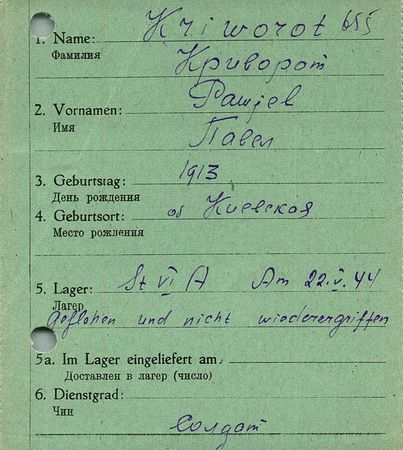 1. Name: Kriworot 655
Фамилия Криворот
2. Vornamen:
Имя Павел
3. Geburtstag: 1913
День рождения
4. Geburtsort: об Киевская
Место рождения
5. Lager: St VI A Am 22.V.44
Лагер
geflohen und nicht wiederergriffen
5a. Im Lager eingeliefert am
Доставлен в лагер (число)
6. Dienstgrad:
Чин
Солдат